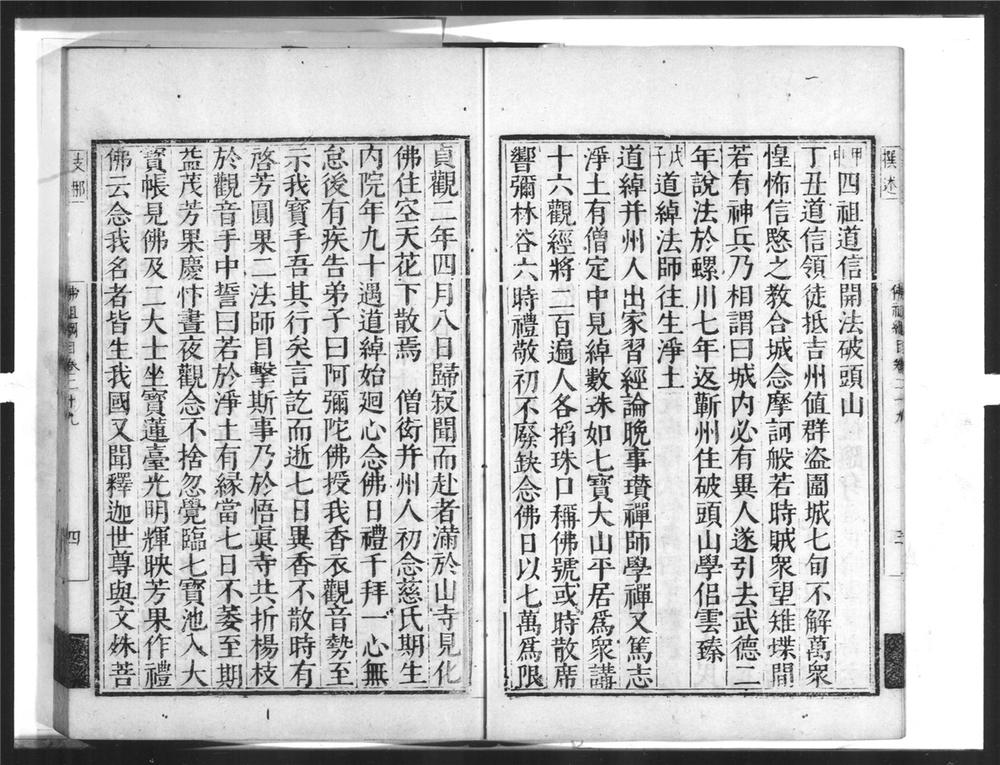 撰述
佛祖綱目卷二十九
三
甲申四祖道信開法破頭山
丁丑道信領徒抵吉州值群盜圍城七旬不解萬衆
惶怖信愍之教合城念摩訶般若時賊衆望雉堞間
若有神兵乃相謂曰城內必有異人遂引去武德二
年說法於螺川七年返蘄州住破頭山學侶雲臻
戊子道綽法師往生淨土
道綽并州人出家習經論晚事瓚禪師學禪又篤志
淨土有僧定中見綽數珠如七寶大山平居爲衆講
十六觀經將二百遍人各搯珠口稱佛號或時散席
響彌林谷六時禮敬初不廢缺念佛日以七萬爲限
貞觀二年四月八日歸寂聞而赴者滿於山寺見化
佛住空天花下散焉　僧衒并州人初念慈氏期生
內院年九十遇道綽始廻心念佛日禮千拜一心無
怠後有疾告弟子曰阿彌陀佛授我香衣觀音勢至
示我寶手吾其行矣言訖而逝七日異香不散時有
啓芳圓果二法師目擊斯事乃於悟眞寺共折楊枝
於觀音手中誓曰若於淨土有緣當七日不萎至期
益茂芳果慶忭晝夜觀念不捨忽覺臨七寶池入大
寶帳見佛及二大士坐寶蓮臺光明輝映芳果作禮
佛云念我名者皆生我國又聞釋迦世尊與文殊菩
支那
佛祖綱目卷二十九
四